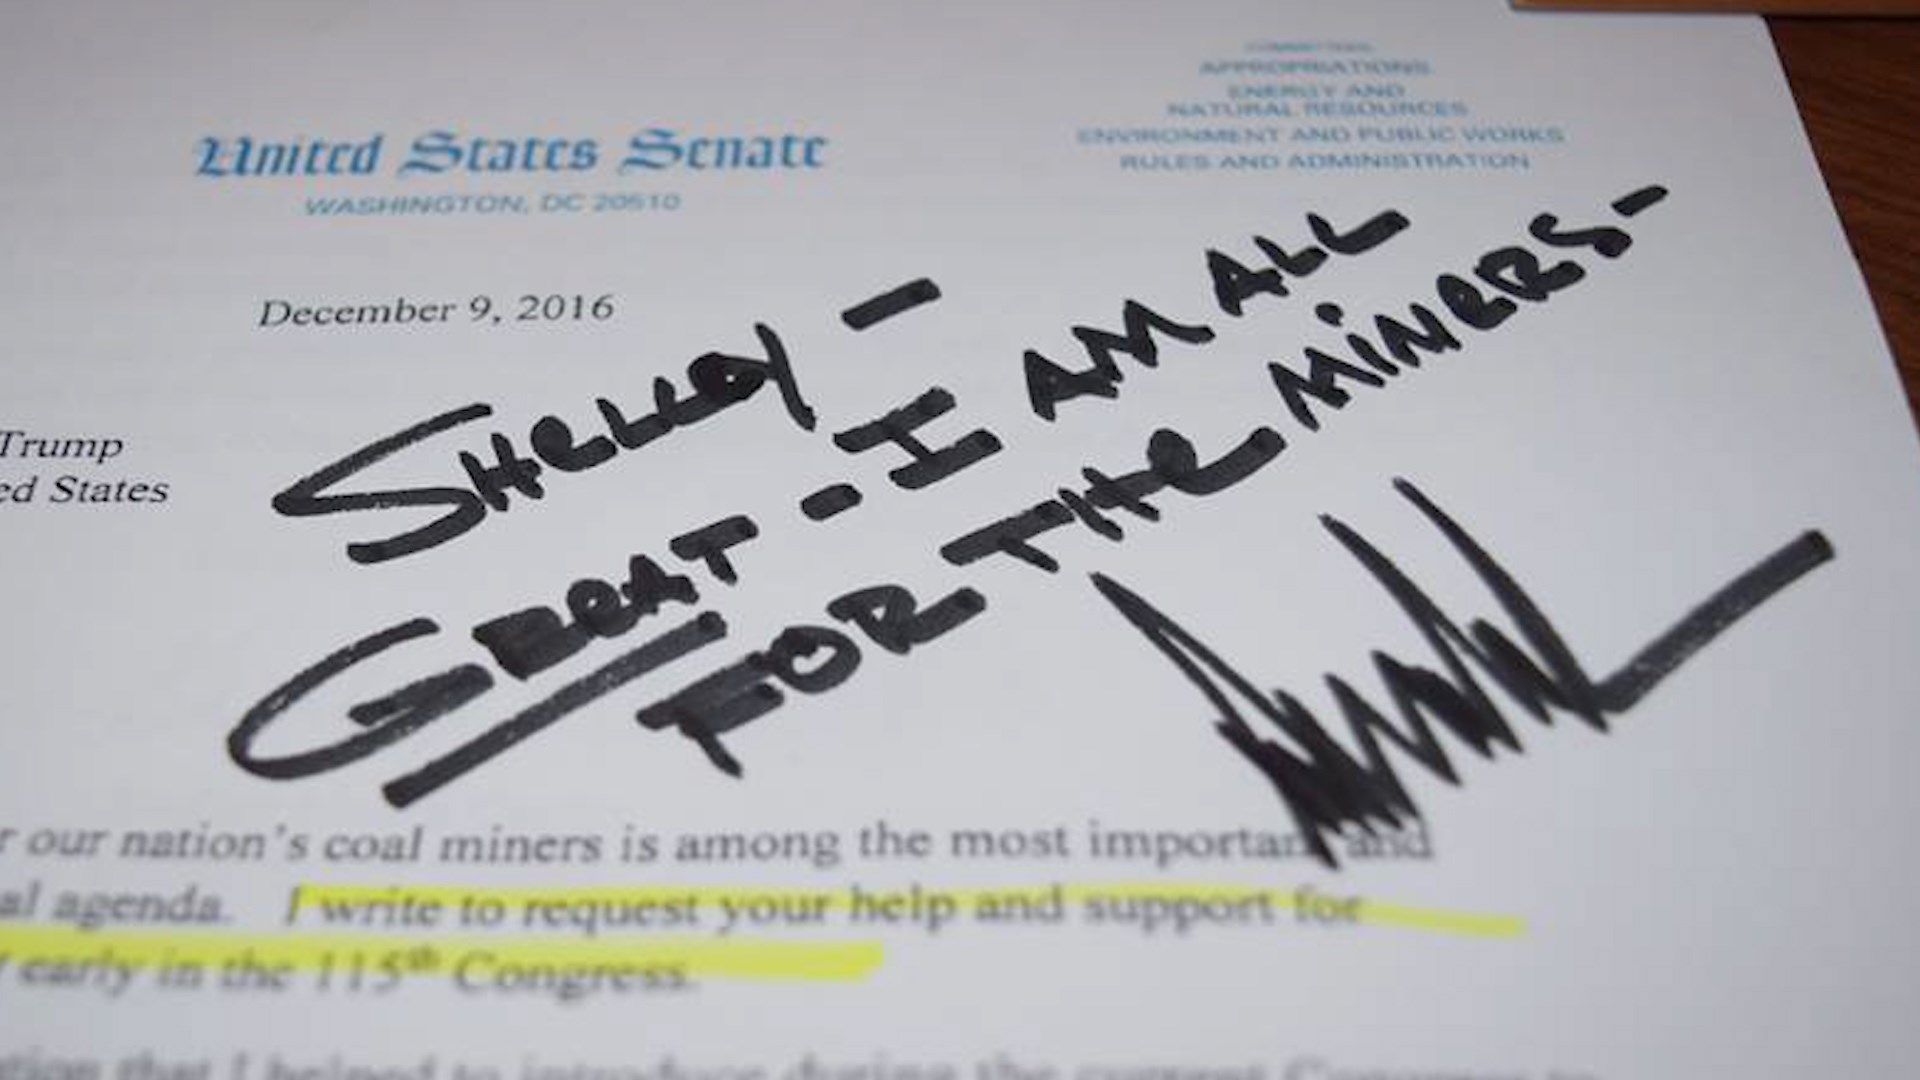 COMMITTEES:
APPROPRIATIONS
ENERGY AND
NATURAL RESOURCES
ENVIRONMENT AND PUBLIC WORKS
RULES AND ADMINISTRATION
United States Senate
WASHINGTON, DC 20510
December 9, 2016
Trump
ed States
SHELLEY -
GREAT - I AM ALL
FOR THE MINERS -
r our nation's coal miners is among the most important and
al agenda. I write to request your help and support for
early in the 115th Congress.
tion that I helped to introduce during the current Congress to